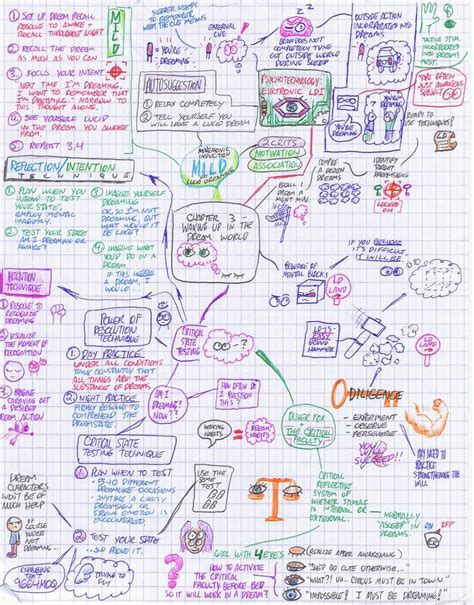 MILD
① SET UP DREAM RECALL
RESOLVE TO AWAKE +
RECALL THROUGHOUT NIGHT
② RECALL THE DREAM
AS MUCH AS YOU CAN
③ FOCUS YOUR INTENT
NEXT TIME I'M DREAMING,
I WANT TO REMEMBER THAT
I'M DREAMING. NARROW TO
1 THOUGHT ALONE.
④ SEE YOURSELF LUCID
IN THE DREAM YOU AWOKE
FROM
⑤ REPEAT 3,4
"YOU'RE
DREAMING"
EXTERNAL
CUE
DOES NOT
COMPLETELY TUNE
OUT OUTSIDE WORLD
DURING SLEEP
OUTSIDE ACTION
INCORPORATED INTO
DREAMS
TACTILE STIM
INCORPORATED
INTO DREAMS
MORE OFTEN
JUST AWAKENS
"YOU'RE
DREAMING"
AUTOSUGGESTION
① RELAX COMPLETELY
② TELL YOURSELF YOU
WILL HAVE A LUCID DREAM
PSYCHOTECHNOLOGY:
ELECTRONIC LDI
READY TO
USE TECHNIQUES!
MNEMONIC
INDUCTION
MILD
OF
LUCID DREAMING
2 CRITS
MOTIVATION
ASSOCIATION
COMPILE
A DOZEN
DREAMS
IDENTIFY
TARGET
LOCKED
ON
RECALL 1
DREAM A
NIGHT MIN.
REFLECTION/INTENTION
TECHNIQUE
① PLAN WHEN YOU
INTEND TO TEST
YOUR STATE,
EMPLOY MENTAL
IMAGERY.
② TEST YOUR STATE
AM I DREAMING OR
AWAKE?
③ IMAGINE YOURSELF
DREAMING
OK, SO I'M NOT
DREAMING, BUT
WHAT WOULD IT
BE LIKE?
④ IMAGINE WHAT
YOU'D DO IN A
DREAM
IF THIS WERE
A DREAM, I
WOULD...
CHAPTER 3 -
WAKING UP IN THE
DREAM WORLD
BEWARE OF
MENTAL BLOCKS
IF YOU BELIEVE
IT'S DIFFICULT
IT WILL BE
LD
LAND
LD IS
EASY
BOARD
HAMMER
LD
LAND
INTENTION
TECHNIQUE
① RESOLVE TO
RECOGNIZE
DREAMING
② VISUALIZE
THE MOMENT OF
RECOGNITION
③ IMAGINE
CARRYING OUT
A DESIRED
DREAM ACTION
POWER OF
RESOLUTION
TECHNIQUE
① DAY PRACTICE
UNDER ALL CONDITIONS
THINK CONSTANTLY THAT
ALL THINGS ARE THE
SUBSTANCE OF DREAMS
② NIGHT PRACTICE
FIRMLY RESOLVE TO
COMPREHEND THE
DREAM STATE
CRITICAL
STATE
TESTING
AM I
DREAMING
NOW??
HOW OFTEN DO
I QUESTION
THIS?
WAKING
HABITS
DREAM
HABITS!
CRITICAL STATE
TESTING TECHNIQUE
① PLAN WHEN TO TEST
5-10 DIFFERENT
PRECHOSE OCCASIONS
ANYTIME A LIKELY
DREAMSIGN OR
STRONG EMOTION IS
ENCOUNTERED.
② TEST YOUR STATE
...AND PROVE IT.
USE THE
SAME
TEST
DREAM
CHARACTERS
WON'T BE OF
MUCH HELP
COURSE
YOU'RE
NOT
DREAMING
CHANGING
TEXT
TRYING TO
FLY
OLIVER FOX
+
THE CRITICAL
FACULTY
DILIGENCE
- EXPERIMENT
OBSERVE
PERSEVERE
YOU WILL
SUCCEED!!
MAY NEED TO
PRACTICE
STRENGTHENING THE
WILL
CRITICAL
REFLECTIVE
SYSTEM OF
WHETHER STIMULI
IS INTERNAL OR
EXTERNAL.
NORMALLY
"ASLEEP"
IN DREAMS
ON
OFF
GIRL WITH 4 EYES
HOW TO ACTIVATE
THE CRITICAL
FACULTY BEFORE BED
SO IT WILL WORK IN A DREAM?
(REALIZE AFTER AWAKENING)
"SHE'D BE CUTE OTHERWISE..."
"WHAT?! UH.. CIRCUS MUST BE IN TOWN."
"IMPOSSIBLE! I MUST BE DREAMING!"